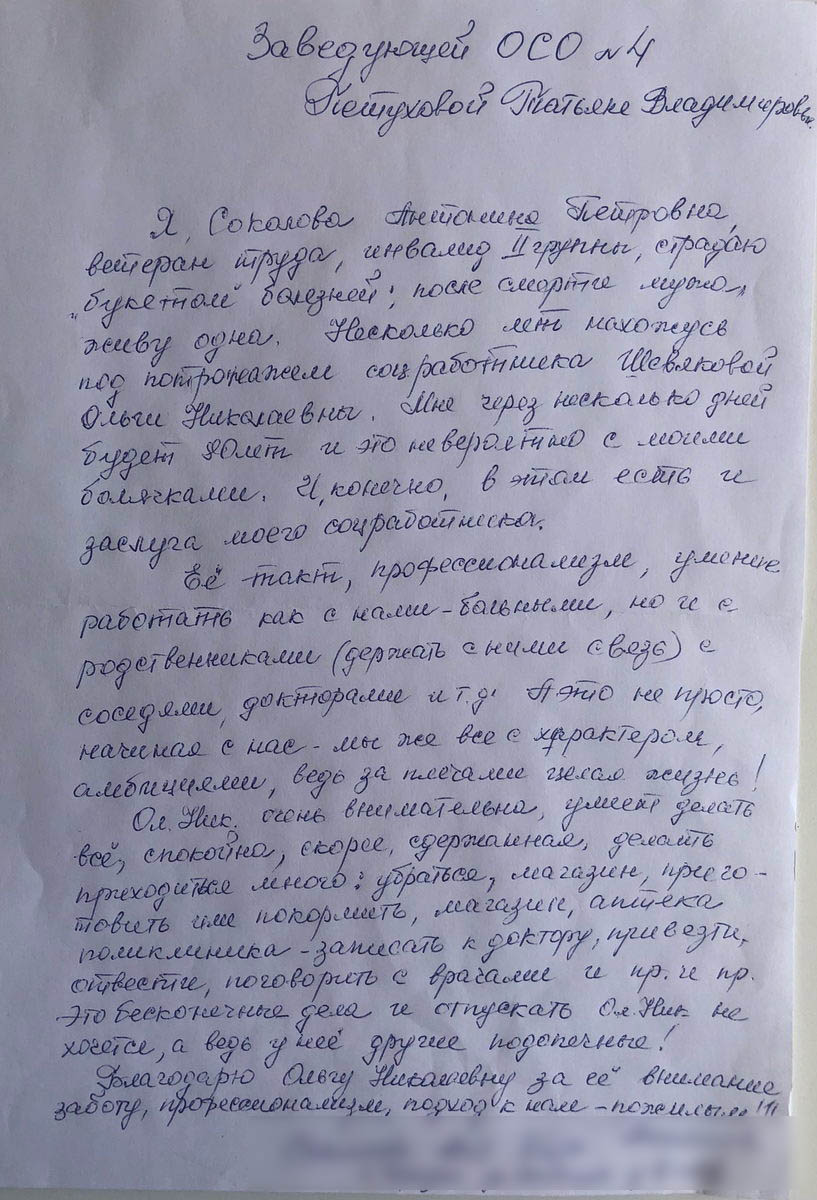 Заведующей ОСО №4
Петуховой Татьяне Владимировн.
Я, Соколова Антонина Петровна,
ветеран труда, инвалид II группы, страдаю
„букетом" болезней; после смерти мужа
живу одна. Несколько лет нахожусь
под патронажем соцработника Шевяковой
Ольги Николаевны. Мне через несколько дней
будет 80 лет и это невероятно с моими
болячками. И, конечно, в этом есть и
заслуга моего соцработника.
Её такт, профессионализм, умение
работать как с нами - больными, но и с
родственниками (держать с ними связь) с
соседями, докторами и т.д. А это не просто,
начиная с нас - мы же все с характером,
амбициями, ведь за плечами целая жизнь!
Ол. Ник. очень внимательна, умеет делать
всё, спокойна, скорее, сдержанная, делать
приходиться много: убраться, магазин, приго-
товить или покормить, магазин, аптека
поликлиника - записать к доктору, привезти,
отвести, поговорить с врачами и пр. и пр.
Это бесконечные дела и отпускать Ол. Ник не
хочется, а ведь у неё другие подопечные!
Благодарю Ольгу Николаевну за её внимание
заботу, профессионализм, подход к нам - пожилым!!!